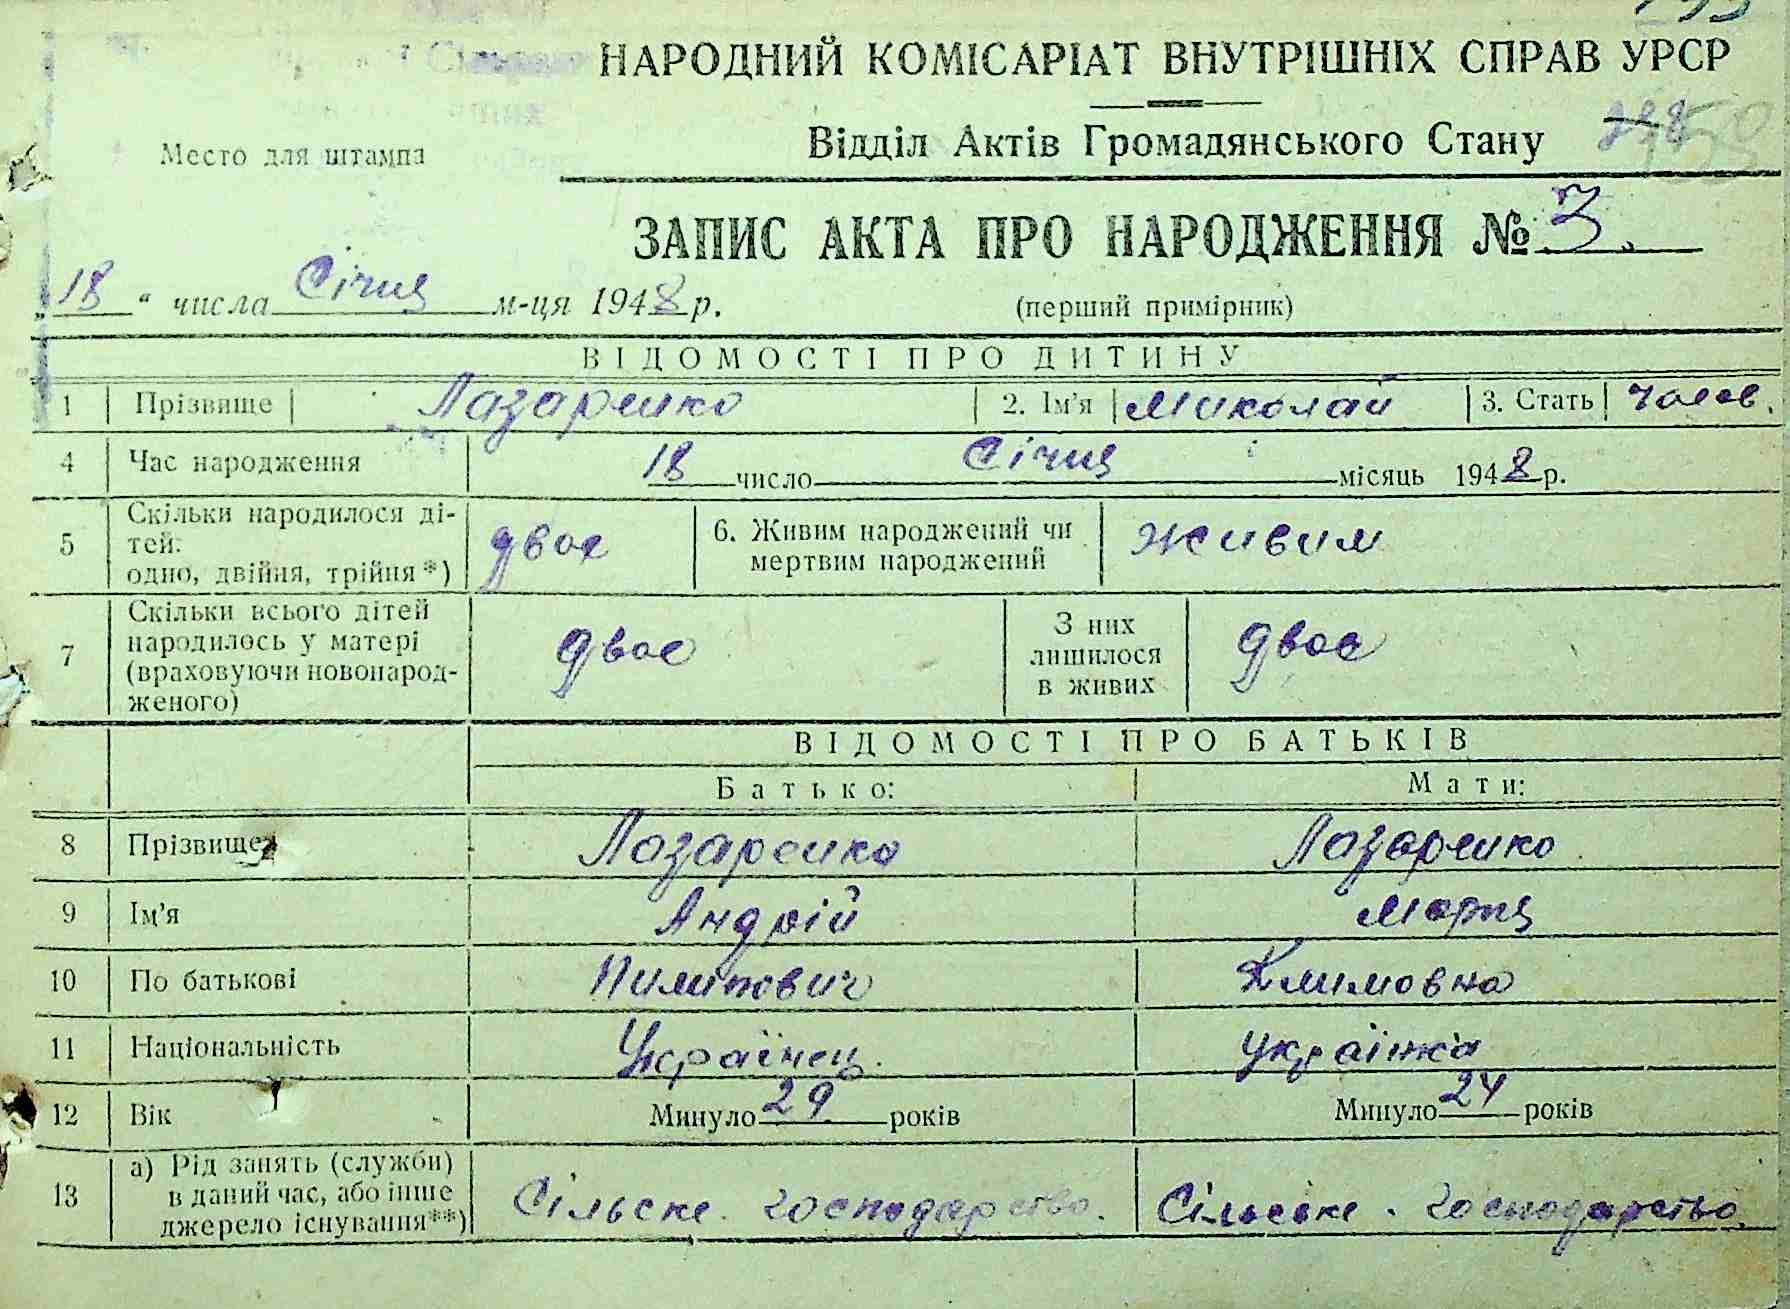 НАРОДНИЙ КОМІСАРІАТ ВНУТРІШНІХ СПРАВ УРСР
Место для штампа
Відділ Актів Громадянського Стану
ЗАПИС АКТА ПРО НАРОДЖЕННЯ № 3.
„18“ числа Січня м-ця 1948 р.
(перший примірник)
ВІДОМОСТІ ПРО ДИТИНУ
1 Прізвище Лазаренко 2. Ім'я Миколай 3. Стать чолов.
4 Час народження 18 число Січня місяць 1948 р.
5 Скільки народилося ді-
тей:
одно, двійня, трійня*) двоє 6. Живим народжений чи
мертвим народжений живим
7 Скільки всього дітей
народилось у матері
(враховуючи новонарод-
женого) двоє З них
лишилося
в живих двоє
ВІДОМОСТІ ПРО БАТЬКІВ
Батько: Мати:
8 Прізвище Лазаренко Лазаренко
9 Ім'я Андрій Марія
10 По батькові Пилипович Климовна
11 Національність Українец. українка
12 Вік Минуло 29 років Минуло 24 років
13 а) Рід занять (служби)
в даний час, або інше
джерело існування**) Сільске господарство. Сільське господарство.